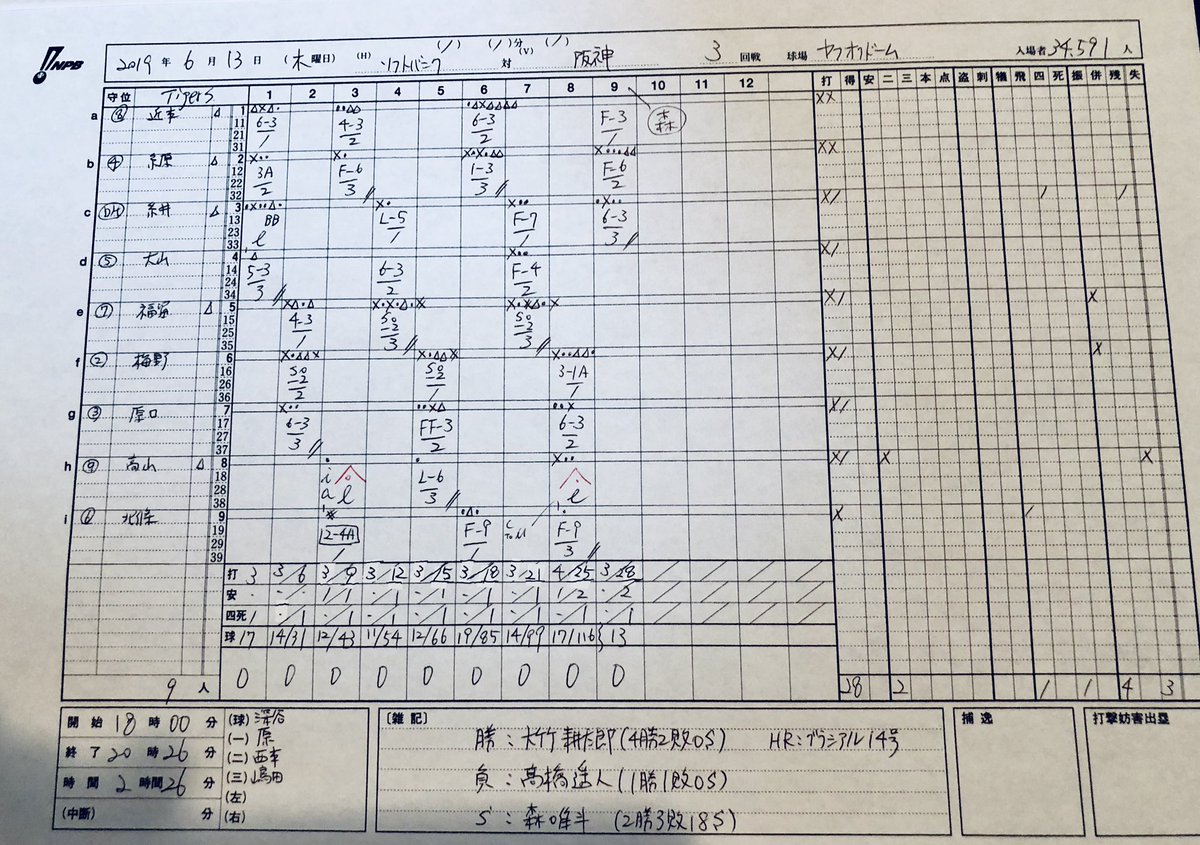 NPB
2019 年 6 月 13 日 (木 曜日) (H) ソフトバンク 対 (V) 阪神 3 回戦 球場 ヤフオクドーム 入場者 34,591 人
守位 Tigers 1 2 3 4 5 6 7 8 9 10 11 12 打 得 安 二 三 本 点 盗 刺 犠 飛 四 死 振 併 残 失
a ⑧ 近本 6-3 1 4-3 2 6-3 2 F-3 1 森
b ④ 糸原 3A 2 F-6 3 1-3 3 F-6 2
c DH 糸井 BB L-5 1 F-7 1 6-3 3
d ⑤ 大山 5-3 3 6-3 2 F-4 2
e ⑦ 福留 4-3 1 SO -2 3 SO -2 3
f ② 梅野 SO -2 2 SO -2 1 3-1A 1
g ③ 原口 6-3 3 FF-3 2 6-3 2
h ⑨ 高山 L-6 3
i ⑥ 北條 2-4A 1 F-9 1 F-9 3
打 3 3/6 3/9 3/12 3/15 3/18 3/21 4/25 3/28
安 · · 1/1 -/1 -/1 -/1 -/1 1/2 -/2
四死 1 -/1 -/1 -/1 -/1 -/1 -/1 -/1 -/1
球 17 14/31 12/43 11/54 12/66 19/85 14/99 17/116 13
9 人 0 0 0 0 0 0 0 0 0 28 2 1 1 4 3
開始 18 時 00 分
終了 20 時 26 分
時間 2 時間 26 分
(中断) 分
(球) 深谷
(一) 原
(二) 西本
(三) 嶋田
(左)
(右)
〔雑記〕
勝:大竹耕太郎(4勝2敗0S) HR:グラシアル14号
負:高橋遥人(1勝1敗0S)
S:森唯斗(2勝3敗18S)
捕逸
打撃妨害出塁